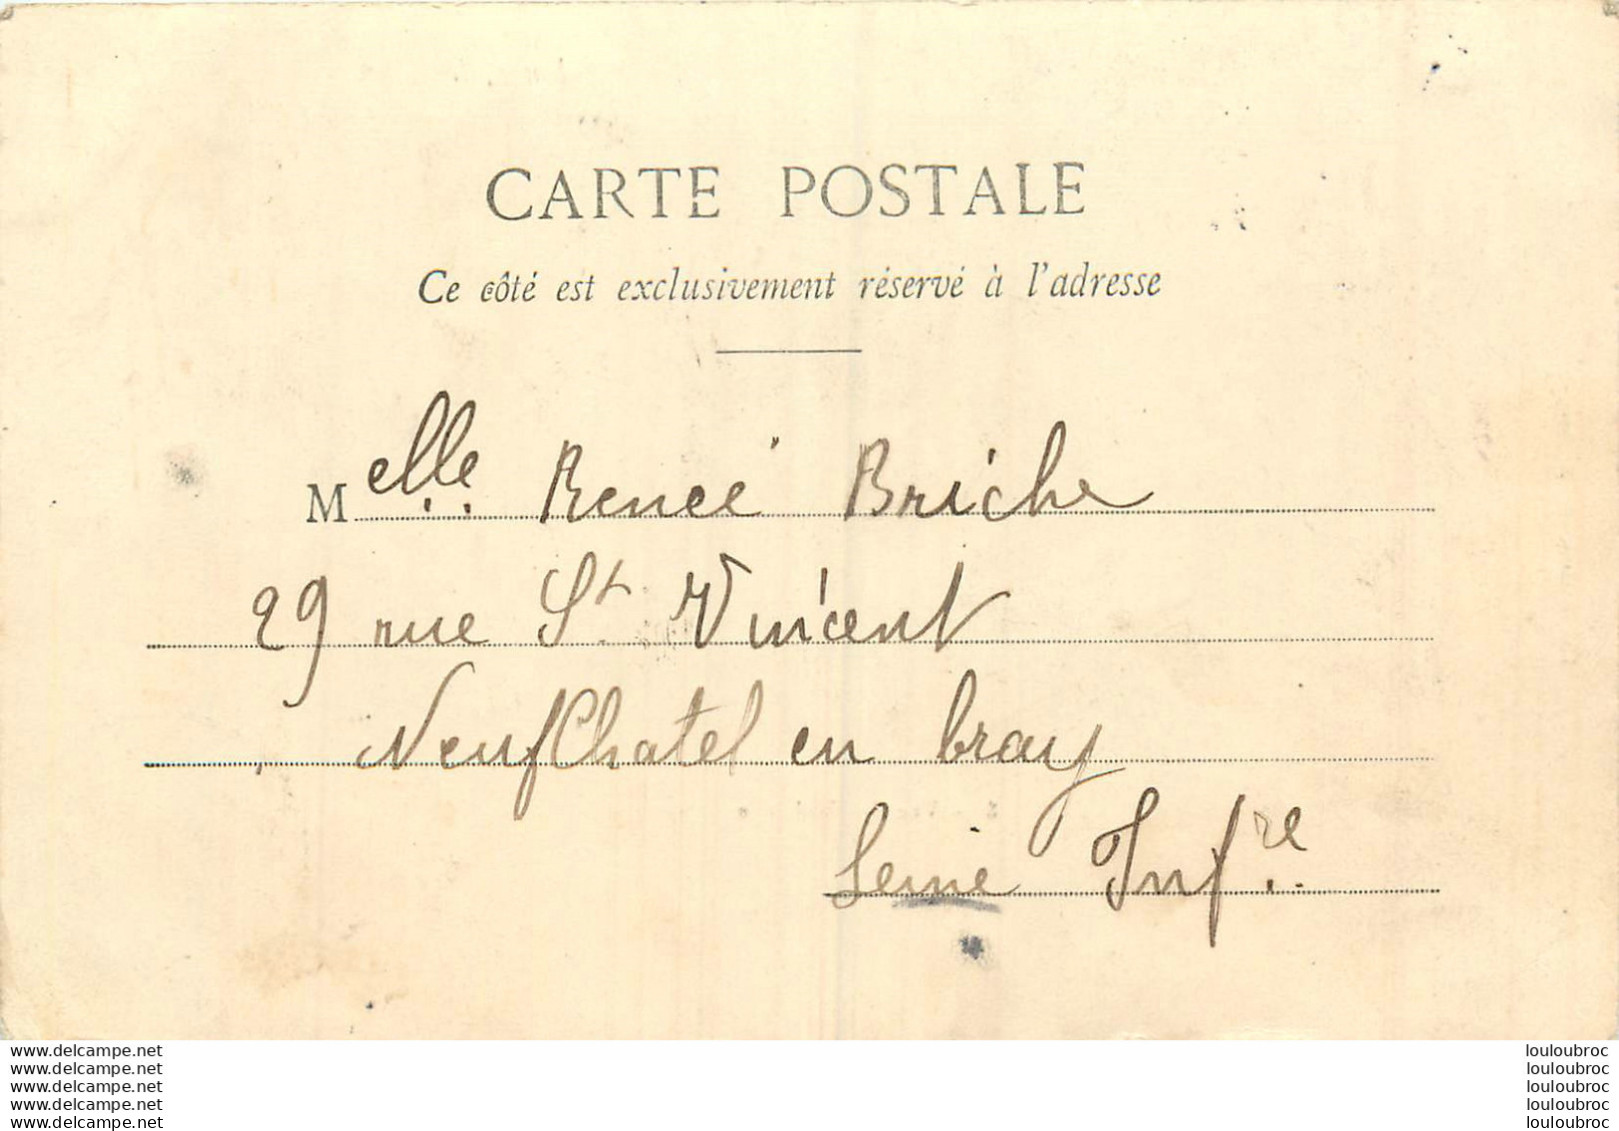 CARTE POSTALE
Ce côté est exclusivement réservé à l'adresse
Melle Renée Briche
29 rue St. Vincent
NeufChatel en bray
Seine Infre
www.delcampe.net
www.delcampe.net
www.delcampe.net
www.delcampe.net
www.delcampe.net
louloubroc
louloubroc
louloubroc
louloubroc
louloubroc